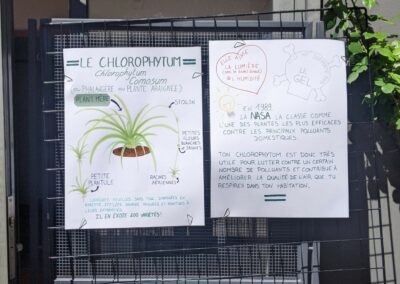 = LE CHLOROPHYTUM =
Chlorophytum
Comosum
(OU PHALANGÈRE OU PLANTE ARAIGNÉE)
PLANT MÈRE
STOLON
PETITES
FLEURS
BLANCHES
PETITE
PLANTULE
RACINES
AÉRIENNES
IL EN EXISTE 200 VARIÉTÉS!
ELLE AIME
LA LUMIÈRE
L'HUMIDITÉ
LE
GEL
EN 1989
LA NASA LA CLASSE COMME
L'UNE DES PLANTES LES PLUS EFFICACES
CONTRE LES PRINCIPAUX POLLUANTS
DOMESTIQUES.
TON CHLOROPHYTUM EST DONC TRÈS
UTILE POUR LUTTER CONTRE UN CERTAIN
NOMBRE DE POLLUANTS ET CONTRIBUE À
AMÉLIORER LA QUALITÉ DE L'AIR QUE TU
RESPIRES DANS TON HABITATION.